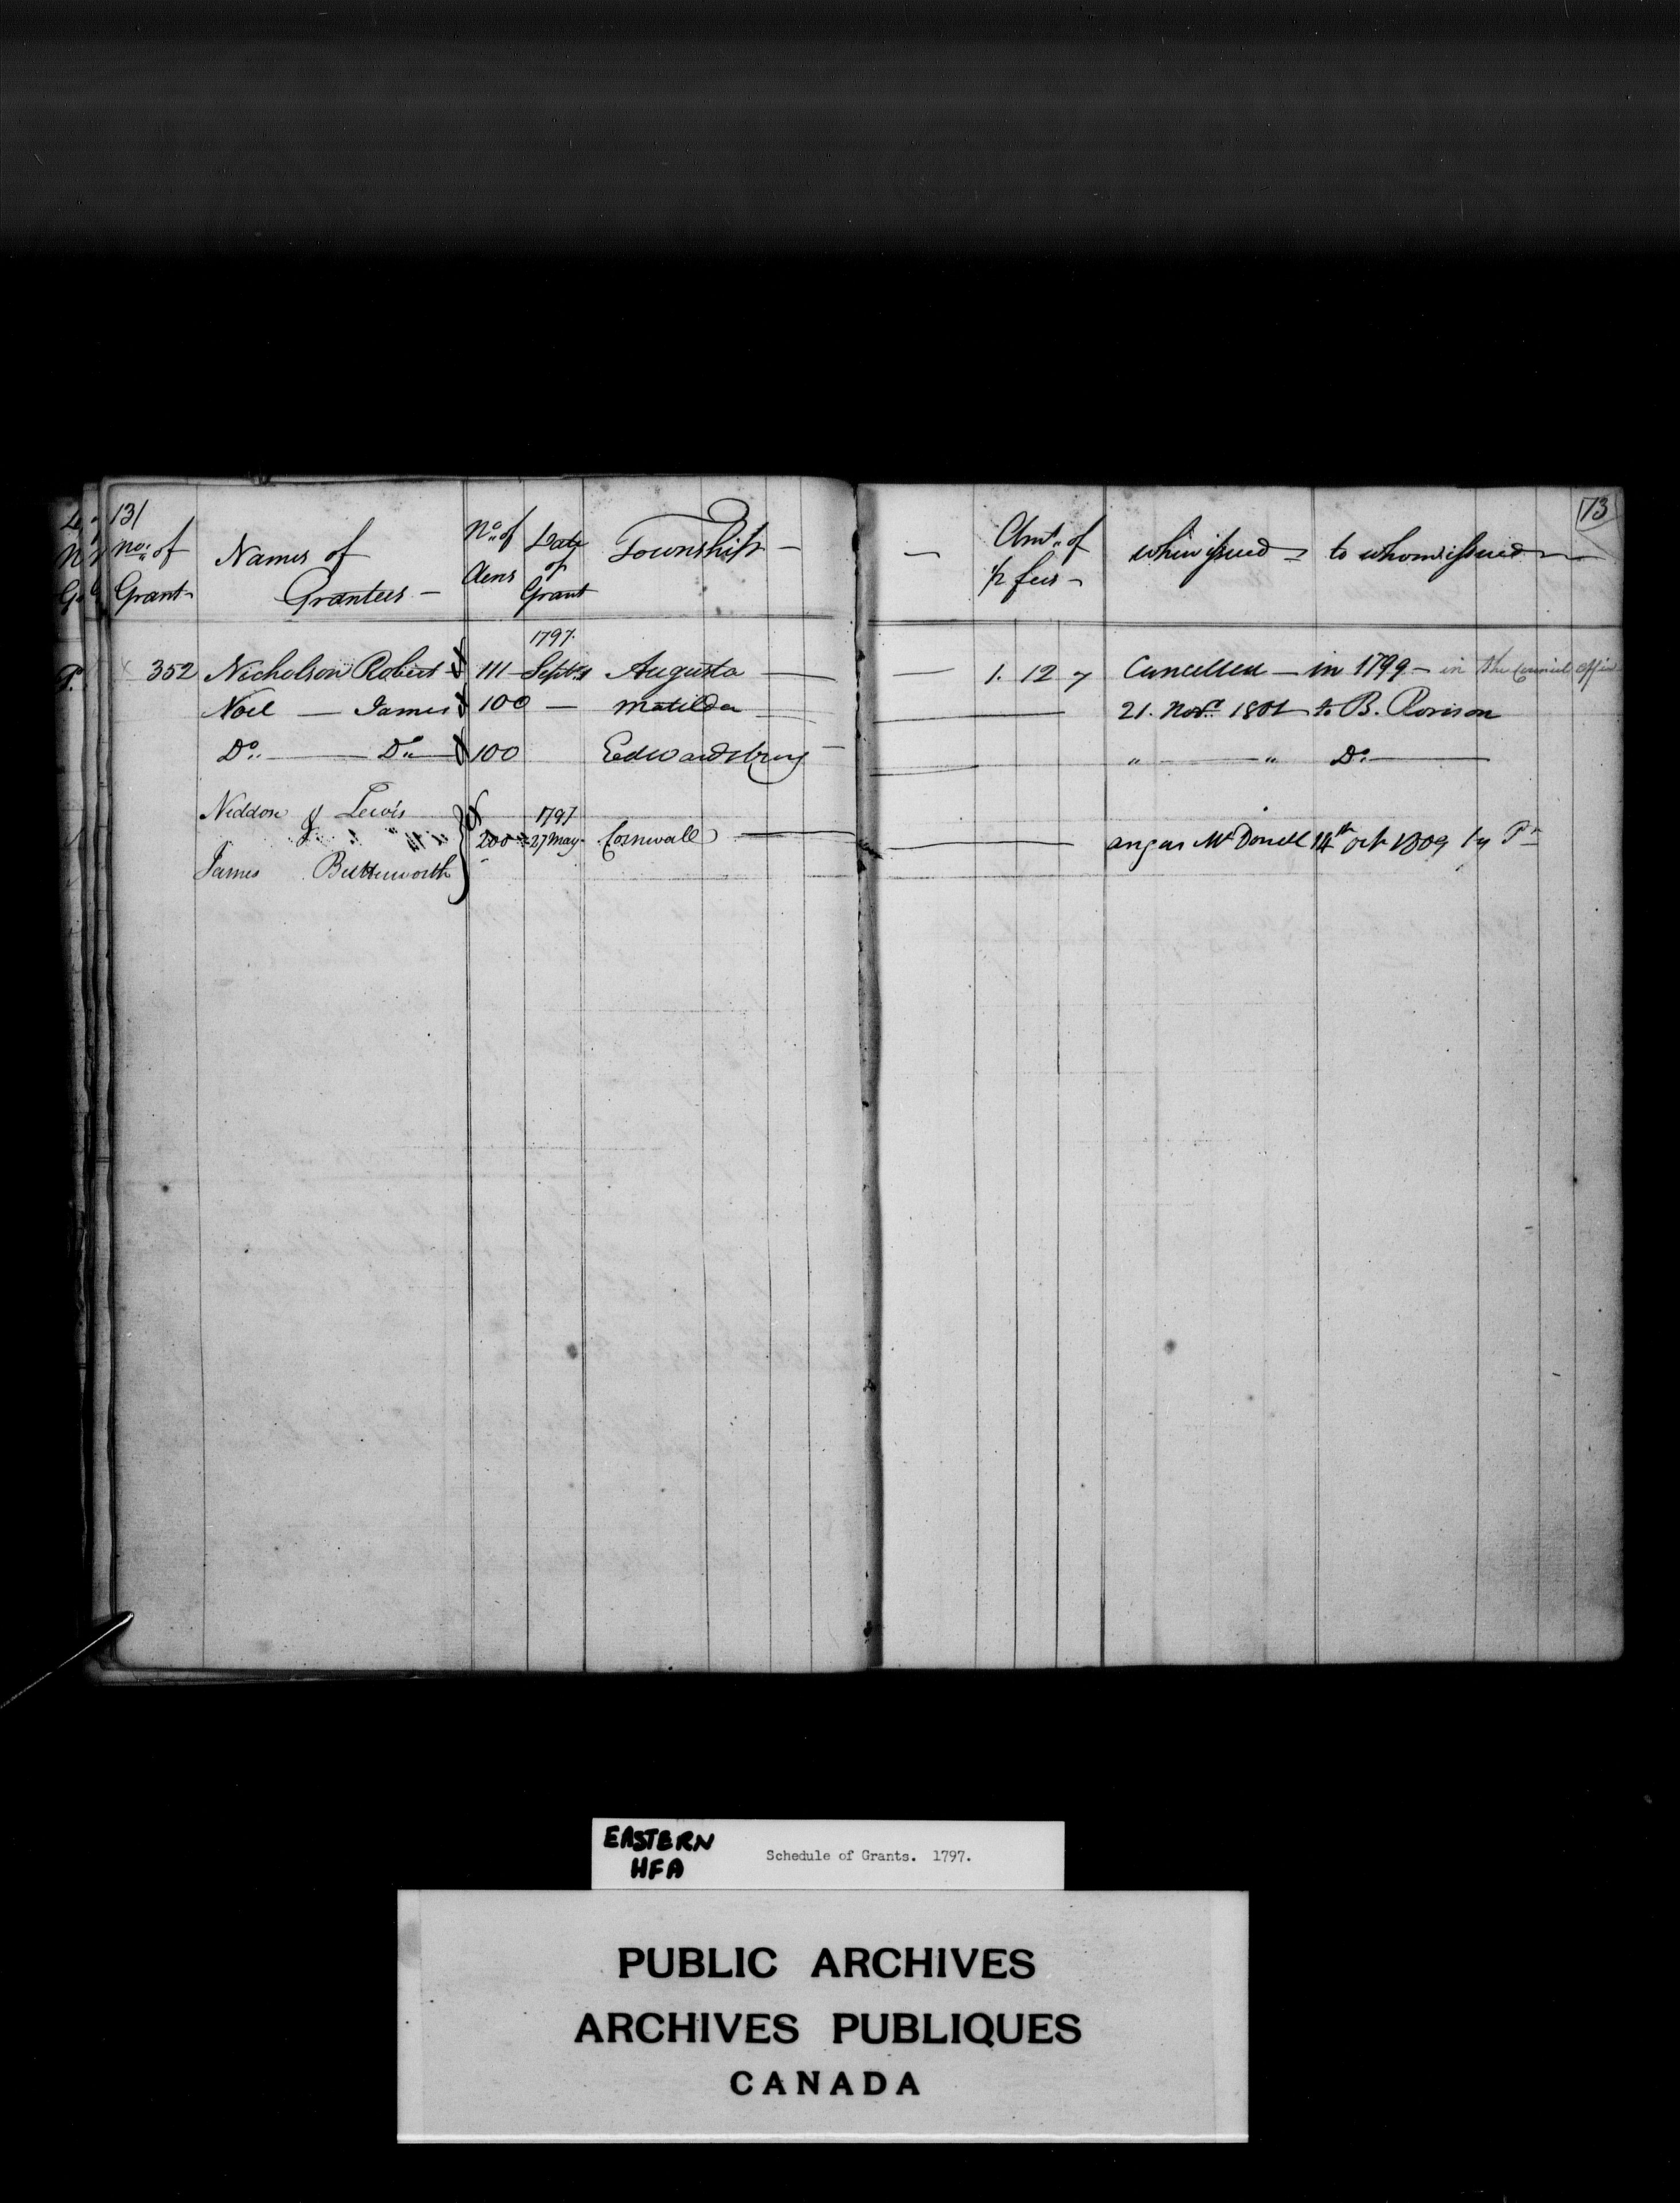 131
No. of Grant
Names of Grantees
No. of Acres
Date of Grant
Township
Amt. of 1/2 fees
when issued
to whom issued
73
1797.
352 Nicholson Robert 111 Sept. Augusta 1. 12 7 Cancelled in 1799 in the Council office
Noel James 100 Matilda 21. Novr. 1801 to B. Rorison
Do. Do. 100 Edwardsburg " " Do.
Lewis
1797
200 27 May Cornwall Angus McDonell 14th Oct 1809
James Butterworth
EASTERN
HFA
Schedule of Grants. 1797.
PUBLIC ARCHIVES
ARCHIVES PUBLIQUES
CANADA